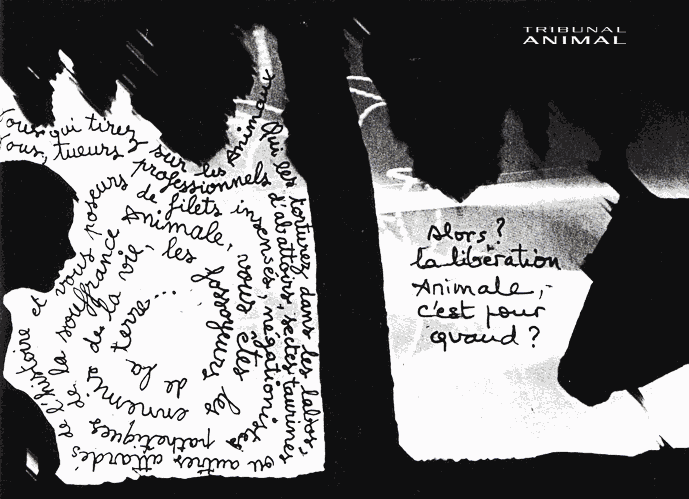 TRIBUNAL
ANIMAL
Vous qui tirez sur les Animaux
Qui les torturez dans les labos,
Vous, tueurs professionnels
d'abattoirs, sectes taurines
ou autres attardés
de l'histoire et vous poseurs
de filets insensés, négationistes
pathétiques
de la souffrance
Animale, vous êtes les
ennemis
de la vie, les
fossoyeurs
de la
terre...
Alors?
la libération
Animale,
c'est pour
quand?